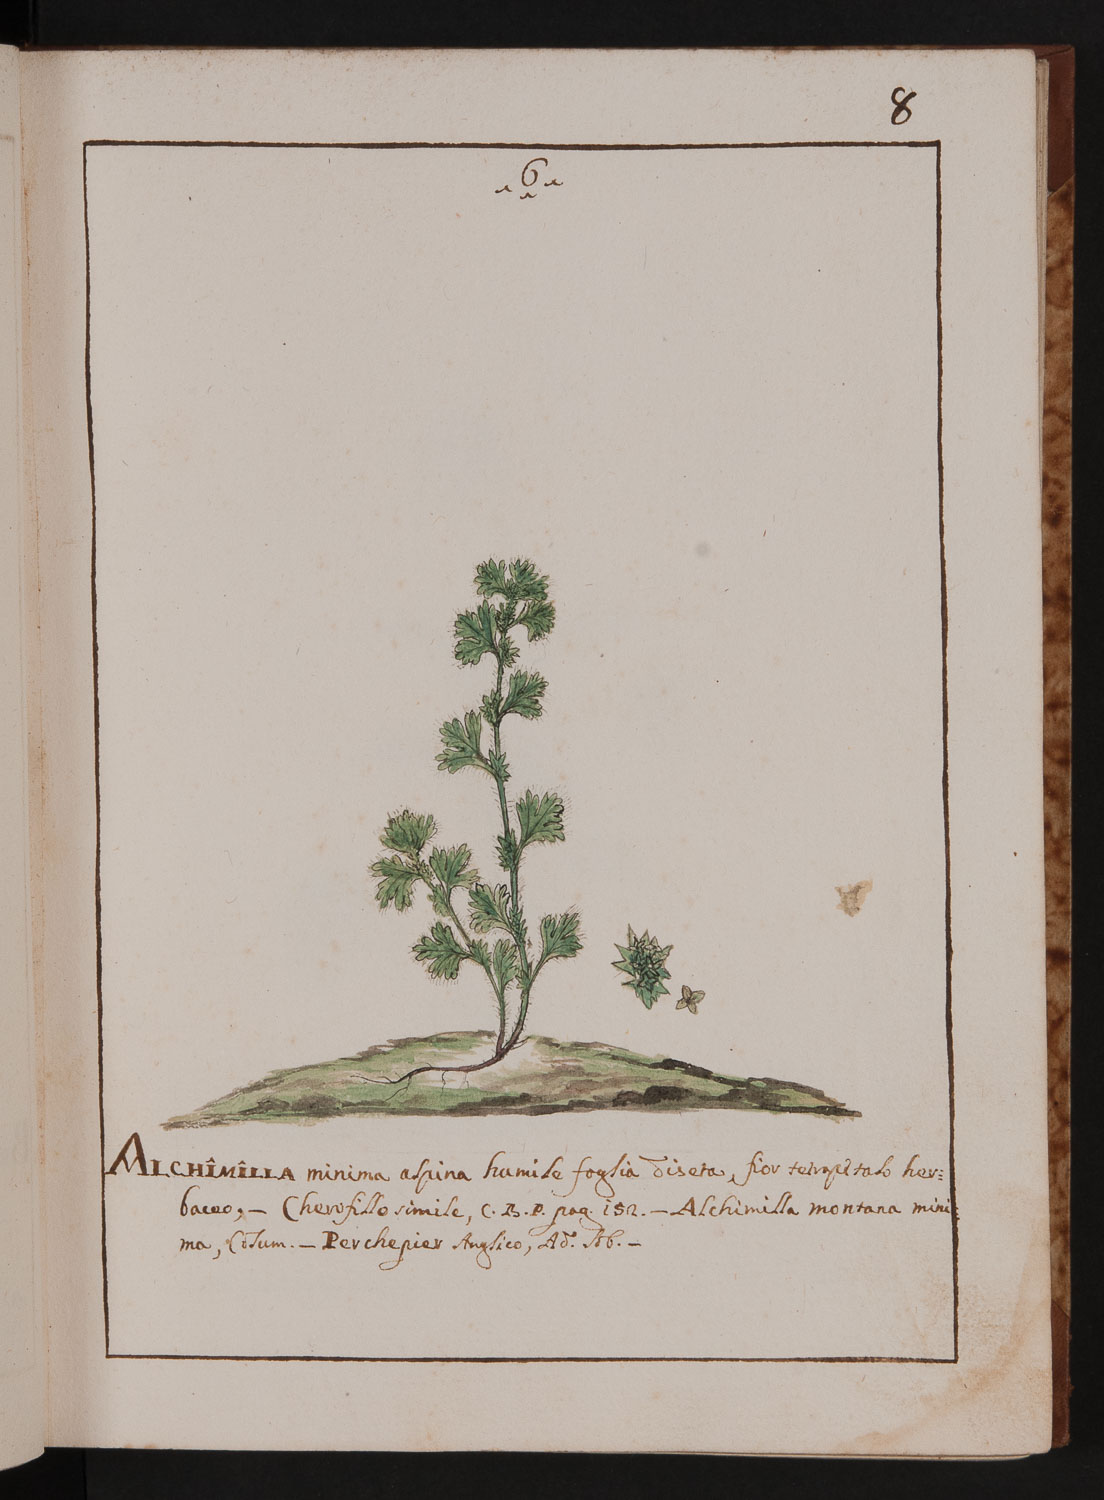 8
6
ALCHÎMÎLLA minima alpina humile foglia diseta, fior tetrapitalo her:
baceo, – Cherofillo simile, C. B. P. pag. 152. – Alchimilla montana mini:
ma, Colum. – Perchepier Anglico, Ad. Lob. –